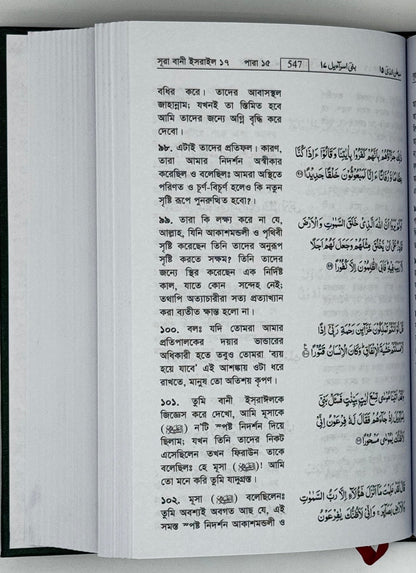 সূরা বানী ইসরাঈল ১৭ পারা ১৫ 547 بنی اسرآءیل ١٧
বধির করে। তাদের আবাসস্থল
জাহান্নাম; যখনই তা স্তিমিত হবে
আমি তাদের জন্যে অগ্নি বৃদ্ধি করে
দেবো।
৯৮. এটাই তাদের প্রতিফল। কারণ,
তারা আমার নিদর্শন অস্বীকার
করেছিল ও বলেছিলঃ আমরা অস্থিতে
পরিণত ও চূর্ণ-বিচূর্ণ হলেও কি নতুন
সৃষ্টি রূপে পুনরুত্থিত হবো?।
৯৯. তারা কি লক্ষ্য করে না যে,
আল্লাহ, যিনি আকাশমণ্ডলী ও পৃথিবী
সৃষ্টি করেছেন তিনি তাদের অনুরূপ
সৃষ্টি করতে সক্ষম? তিনি তাদের
জন্যে স্থির করেছেন এক নির্দিষ্ট
কাল, যাতে কোন সন্দেহ নেই;
তথাপি অত্যাচারীরা সত্য প্রত্যাখ্যান
করা ব্যতীত ক্ষান্ত হলো না।
১০০. বলঃ যদি তোমরা আমার
প্রতিপালকের দয়ার ভান্ডারের
অধিকারী হতে তবুও তোমরা 'ব্যয়
হয়ে যাবে' এই আশঙ্কায় ওটা ধরে
রাখতে, মানুষ তো অতিশয় কৃপণ।
১০১. তুমি বানী ইসরাঈলকে
জিজ্ঞেস করে দেখো, আমি মূসাকে
(ﷺ) ন'টি স্পষ্ট নিদর্শন দিয়ে
ছিলাম; যখন তিনি তাদের নিকট
এসেছিলেন তখন ফিরাউন তাকে
বলেছিলঃ হে মূসা (ﷺ)! আমি
তো মনে করি তুমি যাদুগ্রস্ত।
১০২. মূসা (ﷺ) বলেছিলেনঃ
তুমি অবশ্যই অবগত আছ যে, এই
সমস্ত স্পষ্ট নিদর্শন আকাশমন্ডলী ও
ذٰلِكَ جَزَآؤُهُمْ بِاَنَّهُمْ كَفَرُوْا بِاٰيٰتِنَا وَقَالُوْٓا ءَاِذَا كُنَّا
عِظَامًا وَّرُفَاتًا ءَاِنَّا لَمَبْعُوْثُوْنَ خَلْقًا جَدِيْدًا ۝
اَوَلَمْ يَرَوْا اَنَّ اللّٰهَ الَّذِيْ خَلَقَ السَّمٰوٰتِ وَالْاَرْضَ
قَادِرٌ عَلٰٓى اَنْ يَّخْلُقَ مِثْلَهُمْ وَجَعَلَ لَهُمْ اَجَلًا
لَّا رَيْبَ فِيْهِ فَاَبَى الظّٰلِمُوْنَ اِلَّا كُفُوْرًا ۝
قُلْ لَّوْ اَنْتُمْ تَمْلِكُوْنَ خَزَآئِنَ رَحْمَةِ رَبِّيْٓ اِذًا
لَّاَمْسَكْتُمْ خَشْيَةَ الْاِنْفَاقِ وَكَانَ الْاِنْسَانُ قَتُوْرًا ۝
وَلَقَدْ اٰتَيْنَا مُوْسٰى تِسْعَ اٰيٰتٍ بَيِّنٰتٍ فَسْـَٔلْ بَنِيْٓ
اِسْرَآءِيْلَ اِذْ جَآءَهُمْ فَقَالَ لَهٗ فِرْعَوْنُ اِنِّيْ
لَاَظُنُّكَ يٰمُوْسٰى مَسْحُوْرًا ۝
قَالَ لَقَدْ عَلِمْتَ مَآ اَنْزَلَ هٰٓؤُلَآءِ اِلَّا رَبُّ السَّمٰوٰتِ
وَالْاَرْضِ بَصَآئِرَ وَاِنِّيْ لَاَظُنُّكَ يٰفِرْعَوْنُ